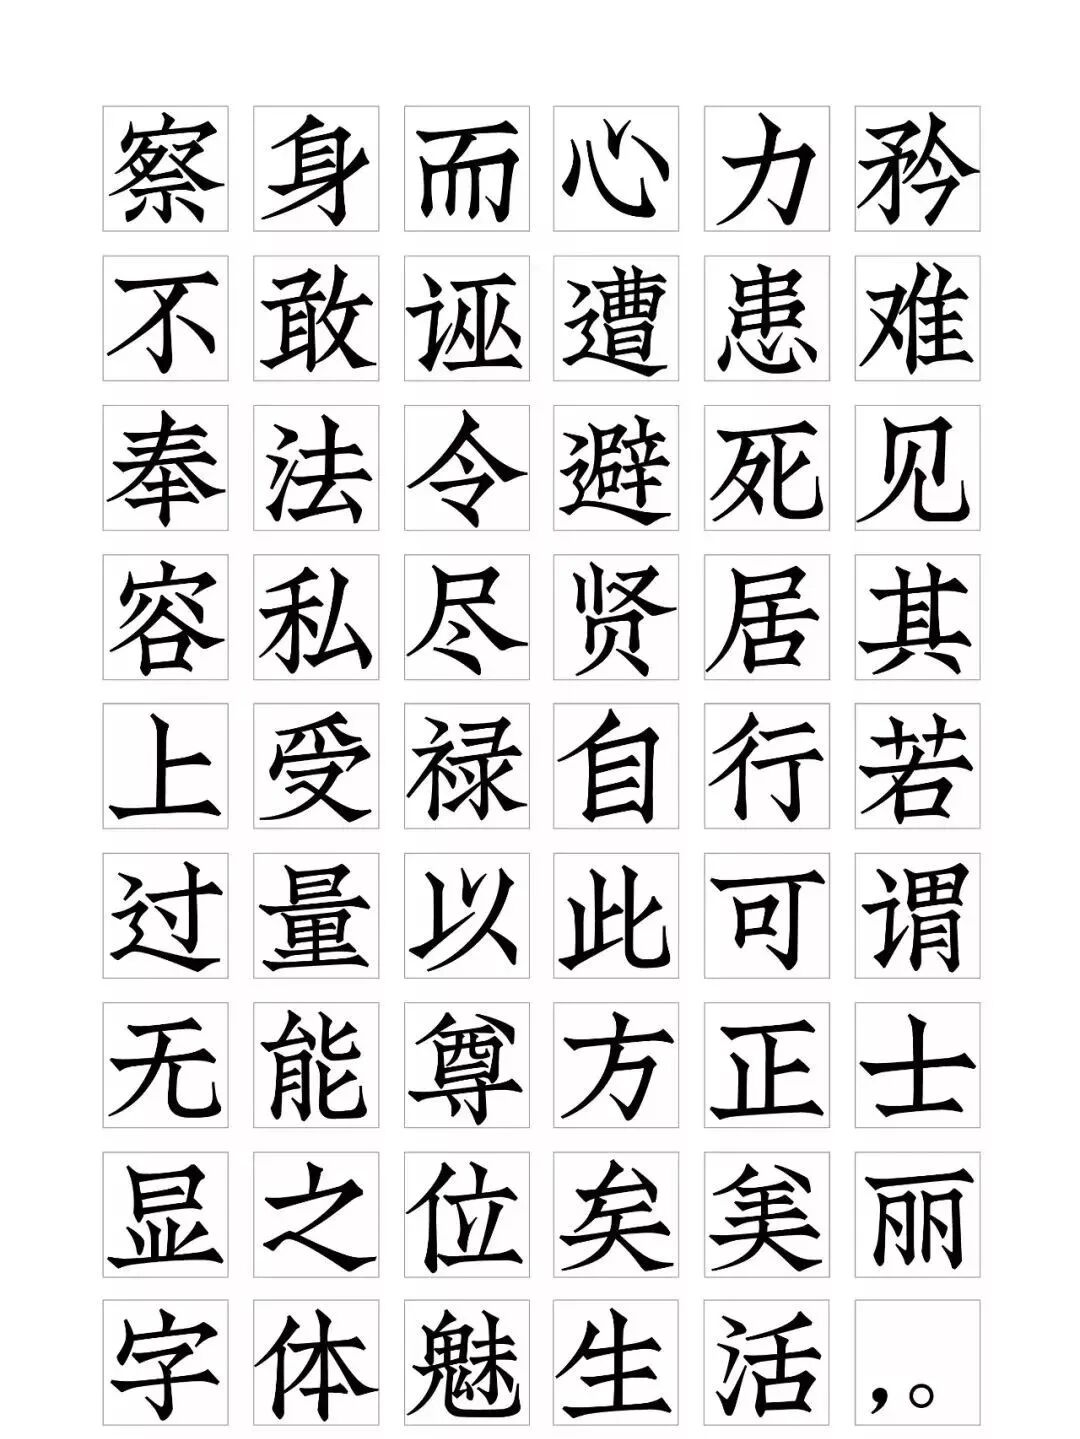 察身而心力矜
不敢诬遭患难
奉法令避死见
容私尽贤居其
上受禄自行若
过量以此可谓
无能尊方正士
显之位矣美丽
字体魅生活,。